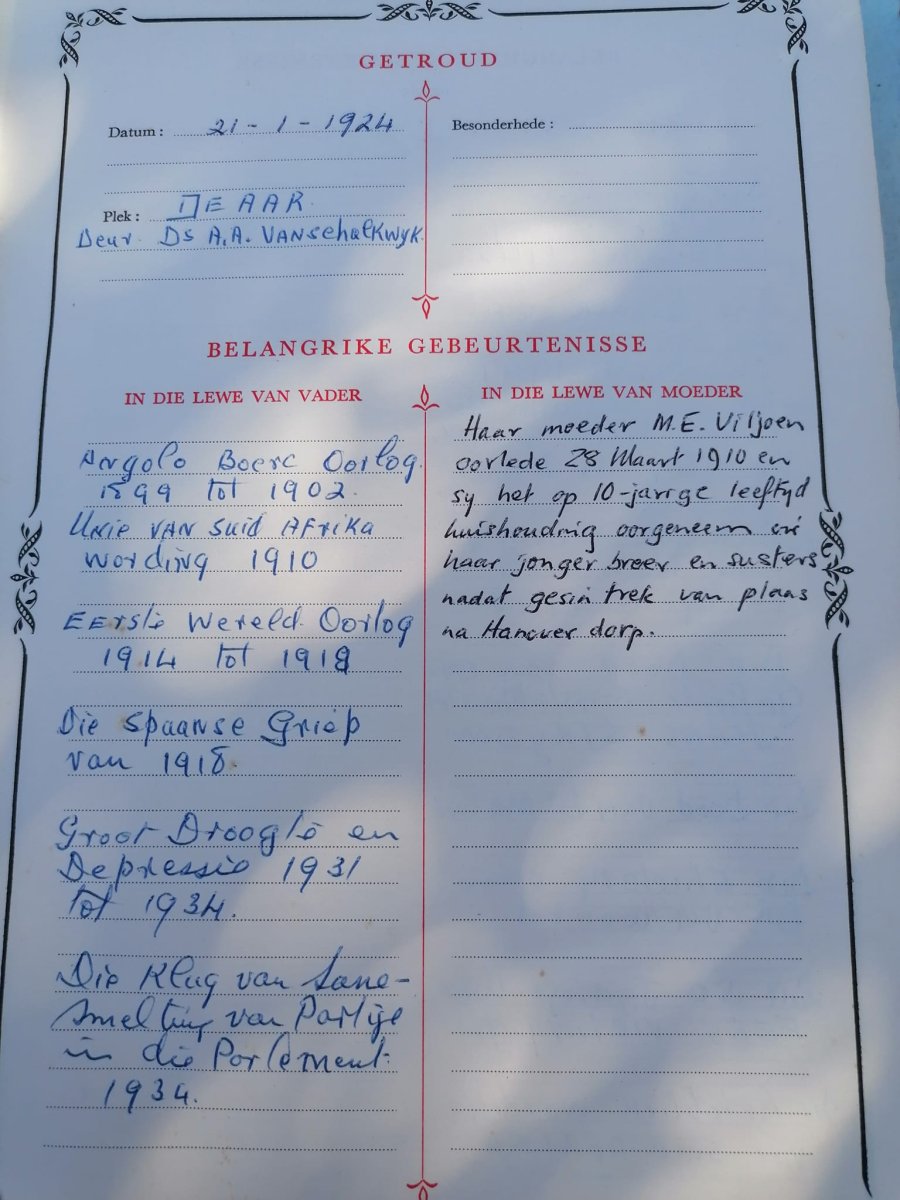 GETROUD
Datum : 21 - 1 - 1924
Besonderhede :
Plek : DE AAR
Deur Ds A.A. VANSchalKWyK
BELANGRIKE GEBEURTENISSE
IN DIE LEWE VAN VADER
Angolo Boere Oorlog
1899 tot 1902.
Unie VAN Suid AFrika
wording 1910
EErste Wereld Oorlog
1914 tot 1918
Die Spaanse Griep
van 1918.
Groot Droogte en
Depressie 1931
tot 1934.
Die van Sane-
smelting van Partye
in die Parlement
1934.
IN DIE LEWE VAN MOEDER
Haar moeder M.E. Viljoen
oorlede 28 Maart 1910 en
sy het op 10-jarige leeftyd
huishouding oorgeneem vir
haar jonger broer en susters
nadat gesin trek van plaas
na Hanover dorp.